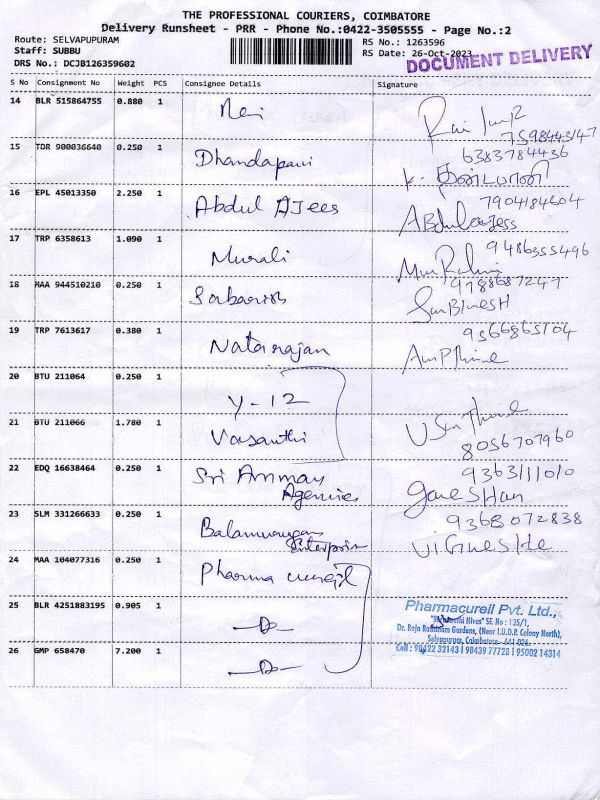 THE PROFESSIONAL COURIERS, COIMBATORE
Delivery Runsheet - PRR - Phone No.:0422-3505555 - Page No.:2
Route: SELVAPUPURAM
Staff: SUBBU
DRS No.: DCJB126359602
RS No.: 1263596
RS Date: 26-Oct-2023
DOCUMENT DELIVERY
S No Consignment No Weight PCS Consignee Details Signature
14 BLR 515864755 0.880 1
7598443147
15 TDR 900036640 0.250 1 Dhandapani
6383784436
16 EPL 45013350 2.250 1 Abdul AJees
7904184604
17 TRP 6358613 1.090 1 Murali
9486355496
18 MAA 944510210 0.250 1
9788687247
19 TRP 7613617 0.380 1 Natarajan
9566865104
20 BTU 211064 0.250 1 Y-12
21 BTU 211066 1.780 1 Vasanthi
8056707960
22 EDQ 16638464 0.250 1 Sri Amman Agencies
9363111010
GaneSHan
23 SLM 331266633 0.250 1 Balamurugan Enterprise
9368072838
24 MAA 104077316 0.250 1 Pharma cureil
25 BLR 4251883195 0.905 1 -Do-
26 GMP 658470 7.200 1 -Do-
Pharmacureil Pvt. Ltd.,
Nivas" SF. No : 135/1,
Dr. Raja Rathinam Gardens, (Near I.U.D.P. Colony North),
Selvapuram, Coimbatore - 641 026.
Cell : 98422 32143 | 98439 77728 | 95002 14314